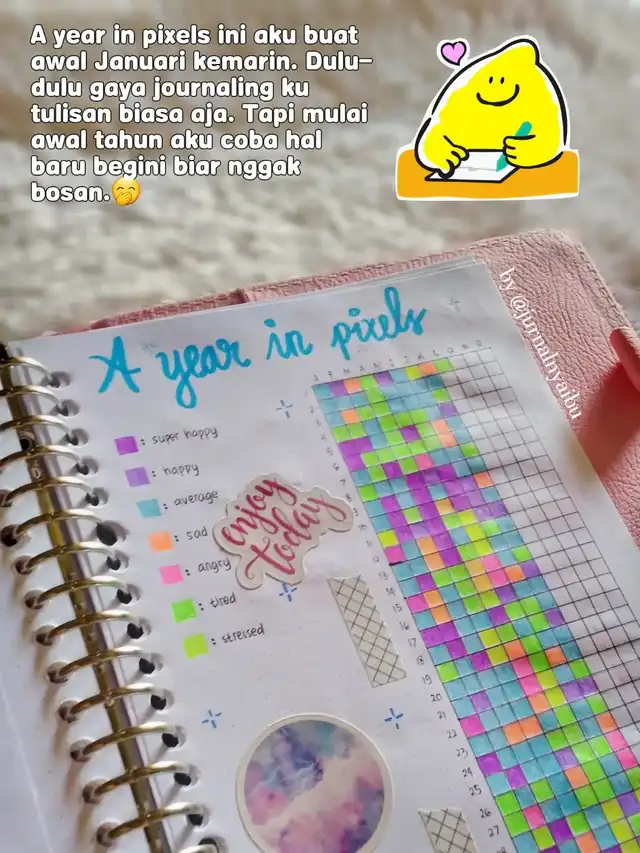 A year in pixels ini aku buat
awal Januari kemarin. Dulu-
dulu gaya journaling ku
tulisan biasa aja. Tapi mulai
awal tahun aku coba hal
baru begini biar nggak
bosan.🤭
by @jurnalnyaibu
A year in pixels
J F M A M J J A S O N D
: super happy
: happy
: average
: sad
: angry
: tired
: stressed
enjoy
today
1
2
3
4
5
6
7
8
9
10
11
12
13
14
15
16
17
18
19
20
21
22
23
24
25
26
27